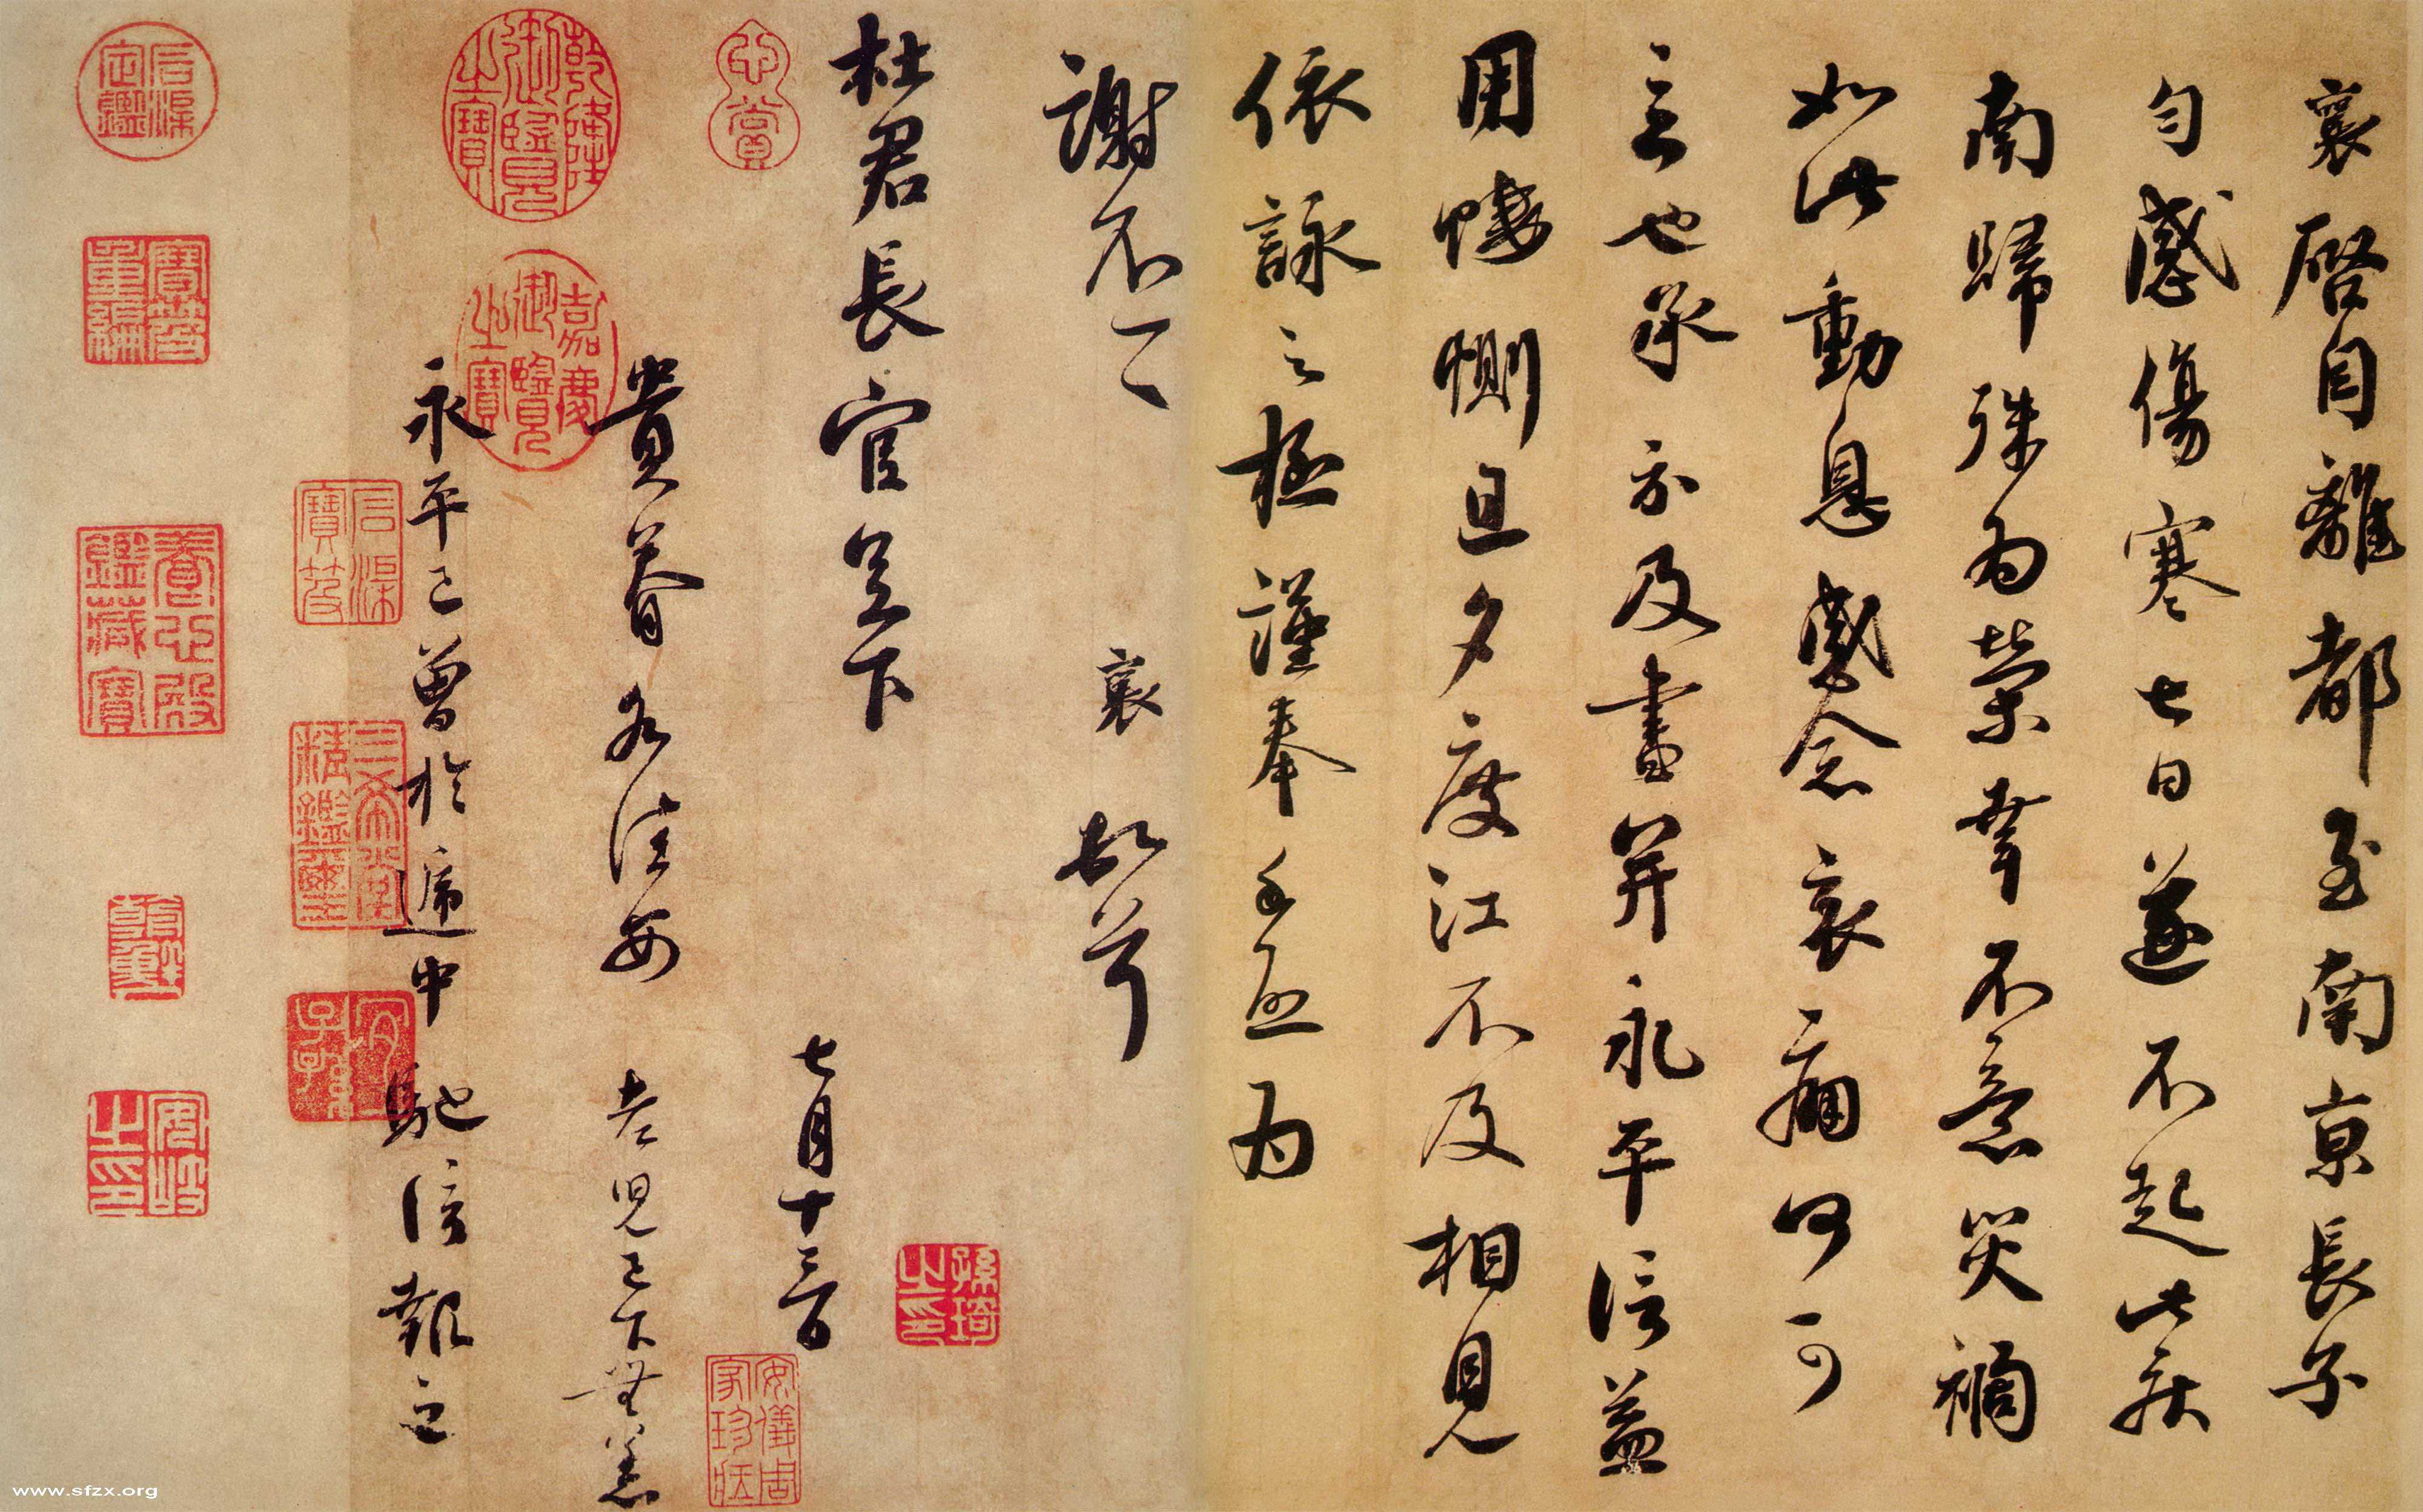 襄啓自離都至南京長子
勻感傷寒七日遂不起此疾
南歸殊為榮幸不意災禍
如此動息感念哀痛何可
言也承示及書并永平信益
用悽惻旦夕度江不及相見
依詠之極謹奉手啟为
謝不一一 襄 頓首
杜君長官足下
七月十三日
貴眷各佳安 老兒已下無恙
永平已曾於遞中馳信報之
乾隆御覽之寶
嘉慶御覽之寶
石渠定鑑
寶笈重編
石渠寶笈
養心殿鑑藏寶
三希堂精鑑璽
宜子孫
乾隆鑑賞
安岐之印
孫琦之印
安儀周家珍藏
心賞
www.sfzx.org